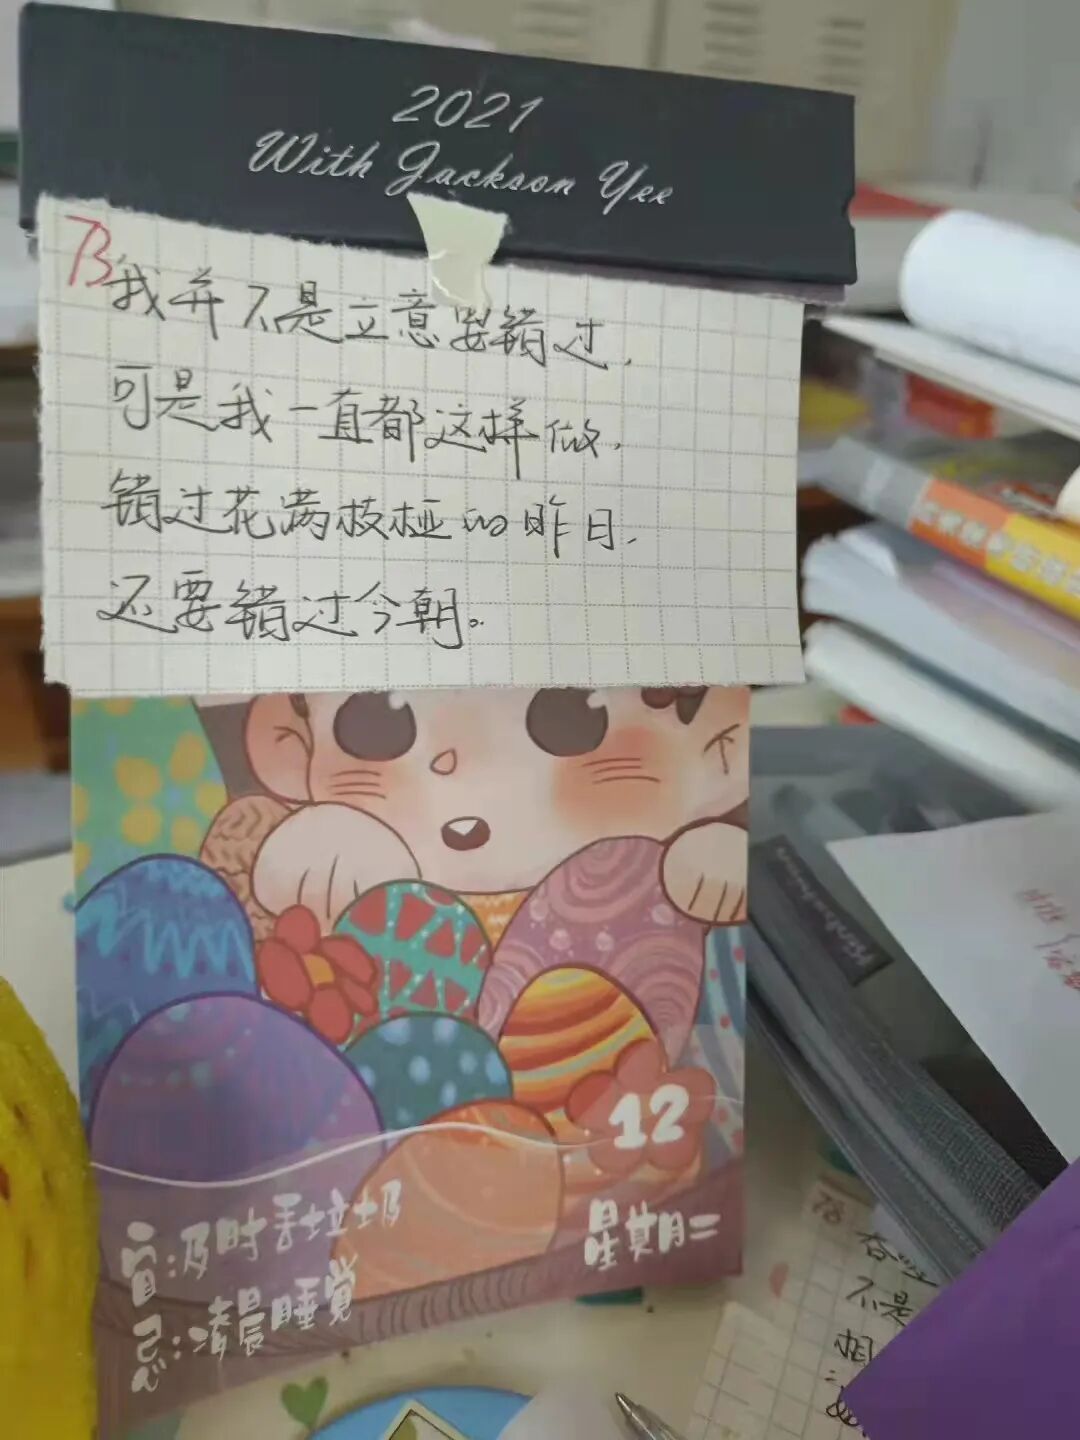 2021
With Jackson Yee
73
我并不是立意要错过，
可是我一直都这样做，
错过花满枝桠的昨日，
还要错过今朝。
12
星期二
宜:及时丢垃圾
忌:凌晨睡觉
不是
相